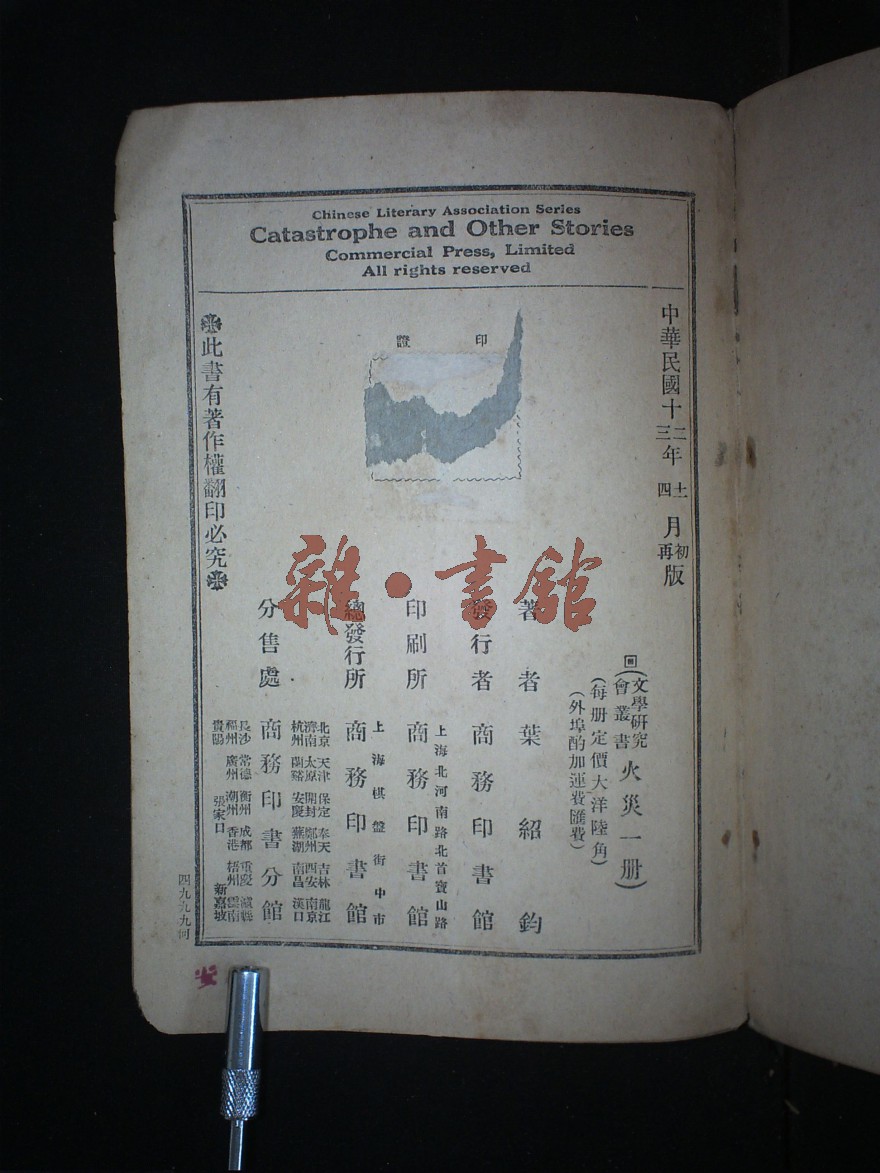 Chinese Literary Association Series
Catastrophe and Other Stories
Commercial Press, Limited
All rights reserved
中華民國十二年十一月初版
三 四 再
印 證
回(文學研究會叢書火災一册)
(每册定價大洋陸角)
(外埠酌加運費匯費)
著者 葉紹鈞
發行者 商務印書館
上海北河南路北首寶山路
印刷所 商務印書館
上海棋盤街中市
總發行所 商務印書館
北京 天津 保定 奉天 吉林 龍江
濟南 太原 開封 鄭州 西安 南京
杭州 蘭谿 安慶 蕪湖 南昌 漢口
分售處 商務印書分館
長沙 常德 衡州 成都 重慶 瀘縣
福州 廣州 潮州 香港 梧州 雲南
貴陽 張家口 新嘉坡
此書有著作權翻印必究
四九九九河
雜·書館